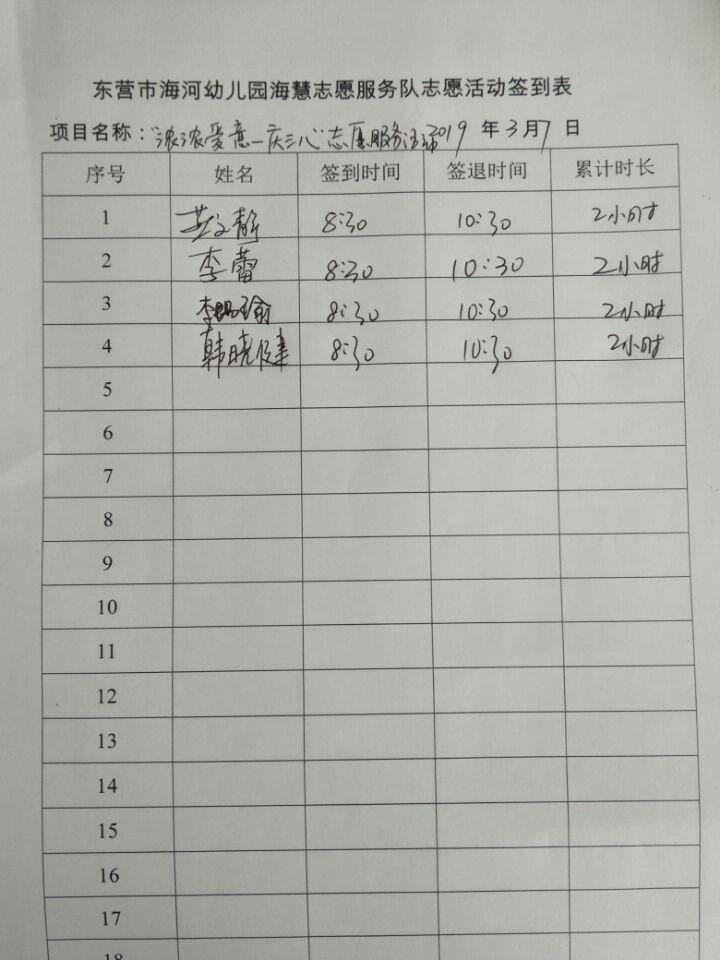 东营市海河幼儿园海慧志愿服务队志愿活动签到表
项目名称：“浓浓爱意—庆三八”志愿服务活动2019 年 3 月 7 日
序号 姓名 签到时间 签退时间 累计时长
1 文静 8:30 10:30 2小时
2 李蕾 8:30 10:30 2小时
3 李 8:30 10:30 2小时
4 韩晓健 8:30 10:30 2小时
5
6
7
8
9
10
11
12
13
14
15
16
17
18